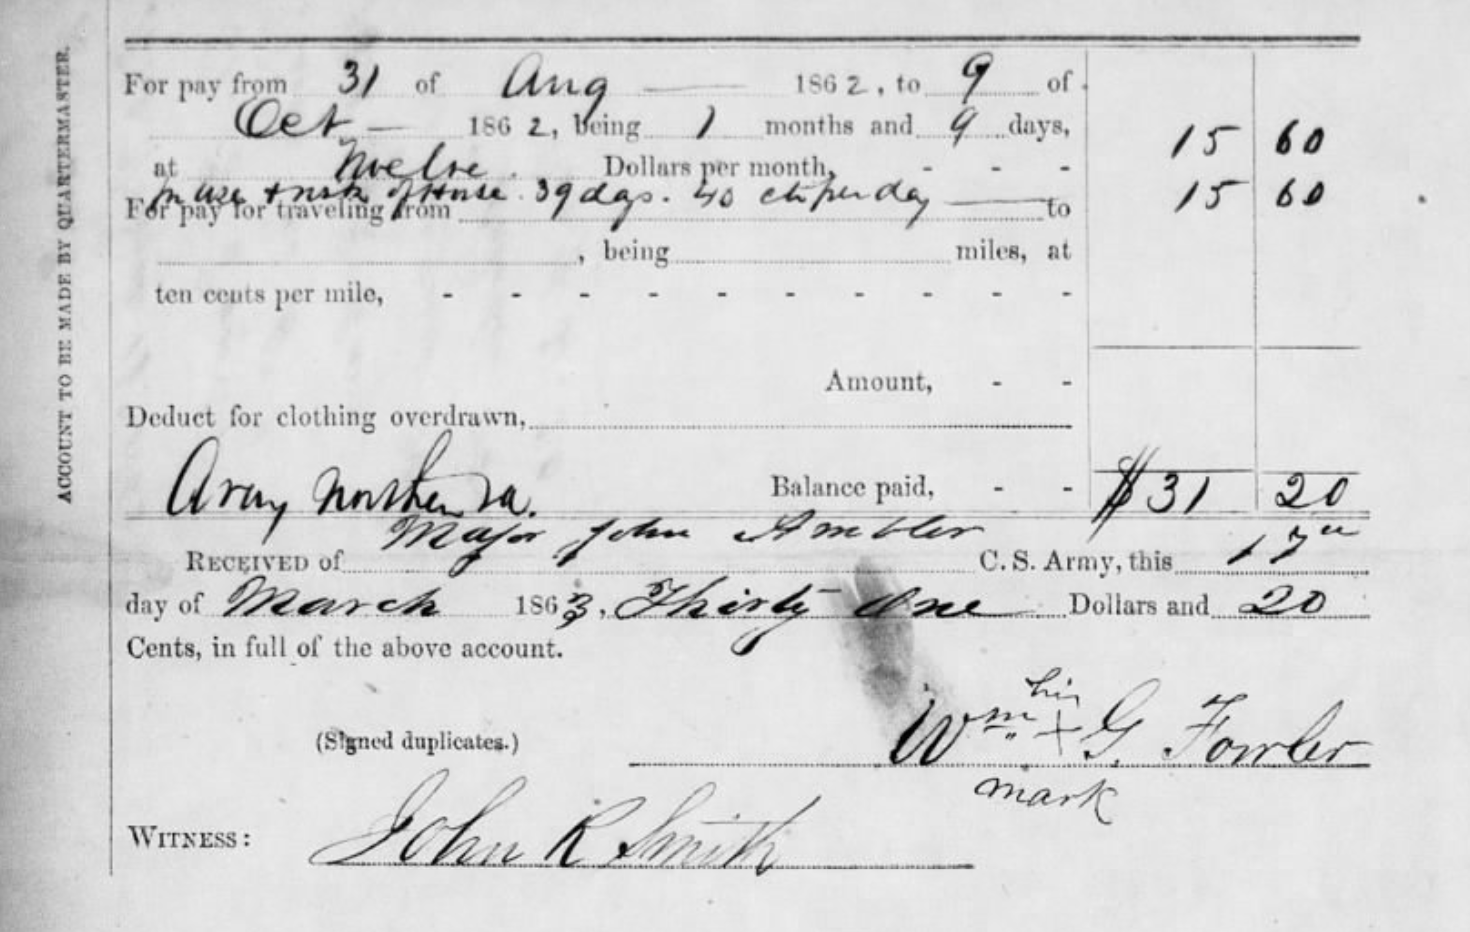 ACCOUNT TO BE MADE BY QUARTERMASTER.
For pay from 31 of Aug 1862, to 9 of
Oct — 1862, being 1 months and 9 days,
at Twelve Dollars per month, - - - 15 60
For use & risk of Horse. 39 days. 40 cts per day 15 60
For pay for traveling from to
, being miles, at
ten cents per mile, - - - - - - - - - -
Amount, - -
Deduct for clothing overdrawn,
Army Northern Va. Balance paid, - - $31 20
Major John Ambler
RECEIVED of C. S. Army, this 17th
day of March 1863, Thirty One Dollars and 20
Cents, in full of the above account.
his
(Signed duplicates.) Wm X G. Fowler
mark
WITNESS: John R Smith